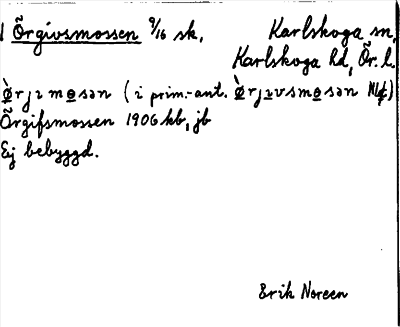 1 Örgivsmossen 9/16 sk,
Karlskoga sn,
Karlskoga hd, Ör. l.
ø̀rjɪmosən (i prim.-ant. ø̀rjɪvsmosən
Örgifsmossen 1906 kb, jb
Ej bebyggd.
Erik Noreen